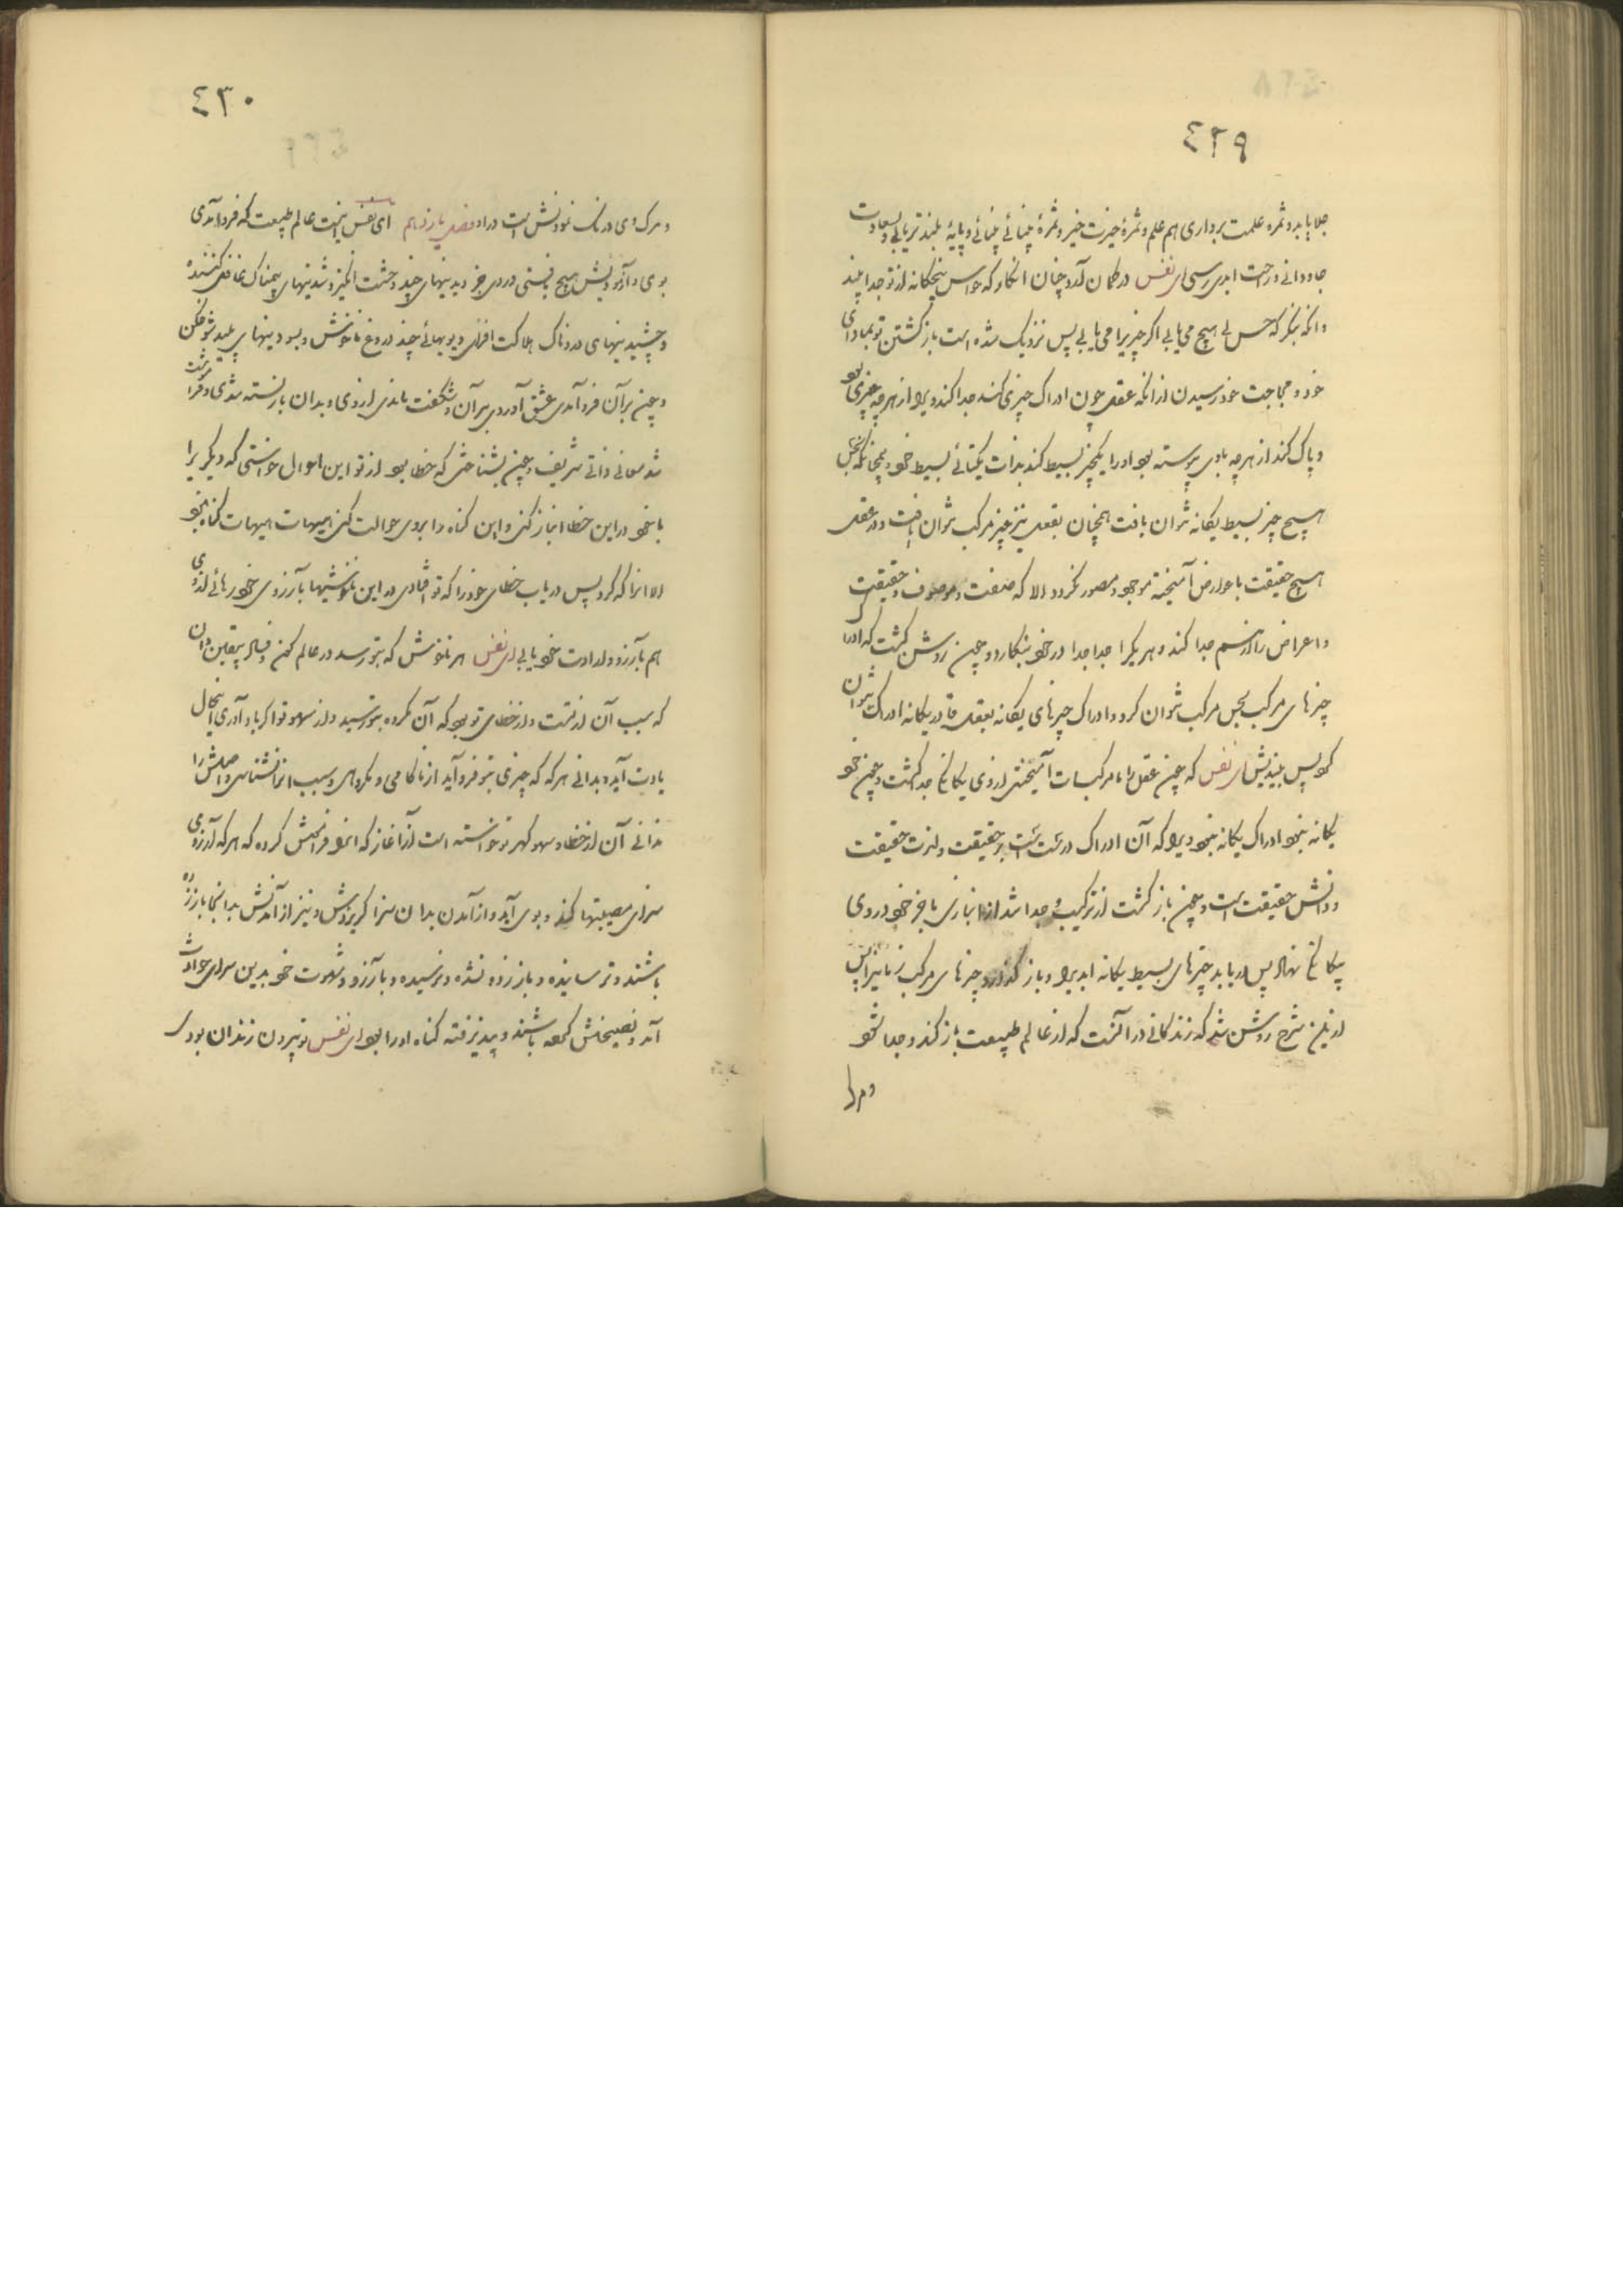 ٤٢٩
جلا یابد و ثمره علمت برداری هم علم و ثمرهٔ خیرت خیر و ثمرهٔ بینائی بینائی و پایهٔ بلندتر یابی و بسعادت
جاودانی و راحت ابدی رسی ای نفس در گمان آور و چنان انگار که حواس پنجگانه از تو جدا شد
وانگه بنگر که حس لی هیچ می یابی اگر چیزیرا می یابی پس نزدیک شده است بازگشتن تو بماوای
خود و بحاجت خود رسیدن از آنکه عقل چون ادراک چیزی کند جدا کند ویرا از هرچه جزوی بود
و پاک کند از هرچه بادی پیوسته بود اورا یکچیز بسیط کند بذات یکتائی بسیط خود و همچنانکه بحس
هیچ چیز بسیط یگانه نتوان یافت همچنان بعقل نیز چیز مرکب نتوان یافت و در عقل
هیچ حقیقت با عوارض آمیخته موجود و مصور نگردد الا که صفت و موصوف و حقیقت
و اعراض را از هم جدا کند و هر یکرا جدا جدا در خود بنگارد و چون روشن گشت که ادراک
چیزهای مرکب بحس مرکب توان کرد و ادراک چیزهای یگانه بعقل قادر یگانه ادراک توان
کرد پس بیندیش ای نفس که چون عقل را با مرکبات آمیختی از وی یگانگی جدا گشت و چون خود
یگانه نبود ادراک یگانه نبود ویرا که آن ادراک درست است بر حقیقت و لذت حقیقت
و دانش حقیقت است و چون بازگشت از ترکیب و جدا شد از انبازی با جز خود در وی
یگانگی نهاد پس دریابد چیزهای بسیط یگانه ابدیرا و باز گذارد چیزهای مرکب زمانیرا پس
از این شرح روشن شد که زندگانی در آنست که از عالم طبیعت باز کند و جدا شود
و مرا
٤٣٠
و مرگ وی درنگ نمودنش است در او فصل یازدهم ای نفس نیست عالم طبیعت که فرود آمدی
بوی و آزمودیش هیچ نیستی در وی جز دیدنیهای چند وحشت انگیز و شنیدنیهای بیمناک غافل کننده
و چشیدنیهای دردناک هلاکت افزای و بویهائی چند دروغ ناخوش و بسودنیهای پلید شوخگن
و چون بر آن فرود آمدی عشق آوردی بر آن و شگفت ماندی از وی و بدان بازبسته شدی و فراموشت
شد معانی ذاتی شریف و چون بشناختی که خطا بود از تو این احوال خواستی که دیگریرا
با خود در این خطا انباز کنی و این گناه را بروی حوالت کنی هیهات هیهات گناه نبود
الا انرا که کرد پس دریاب خطای خود را که تو افتادی در این ناخوشیها بآرزوی خود رهائی از وی
هم بآرزو و ارادت خود یابی ای نفس هر ناخوش که بتو رسد در عالم کون و فساد بیقین بدان
که سبب آن از تست و از خطای تو بود که آن مکروه بتو رسید و از سهو تو اگر یاد آوری آنحال
یادت آید و بدانی هرگه که چیزی بتو فرود آید از ناکامی و مکروهی و سبب انرا نشناسی و اصلش را
ندانی آن از خطا و سهو کهر تو خواسته است از آغاز که انرا فراموش کرده که هرکه آرزوی
سرای مصیبتها کند و بوی آید و از آمدن بدان سزا گریزدش و نیز از آمدنش بدانجا باز زده
باشند و ترسانیده و باز زده نشده و نترسیده و بآرزو و شهوت خود بدین سرای حوادث
آمد و نصیحتش کرده باشند و نپذیرفته گناه اورا بود ای نفس تو بیرون زندان بودی